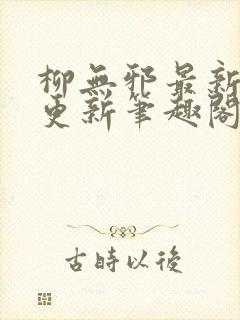 柳無邪最新
更新筆趣閣
古時以後